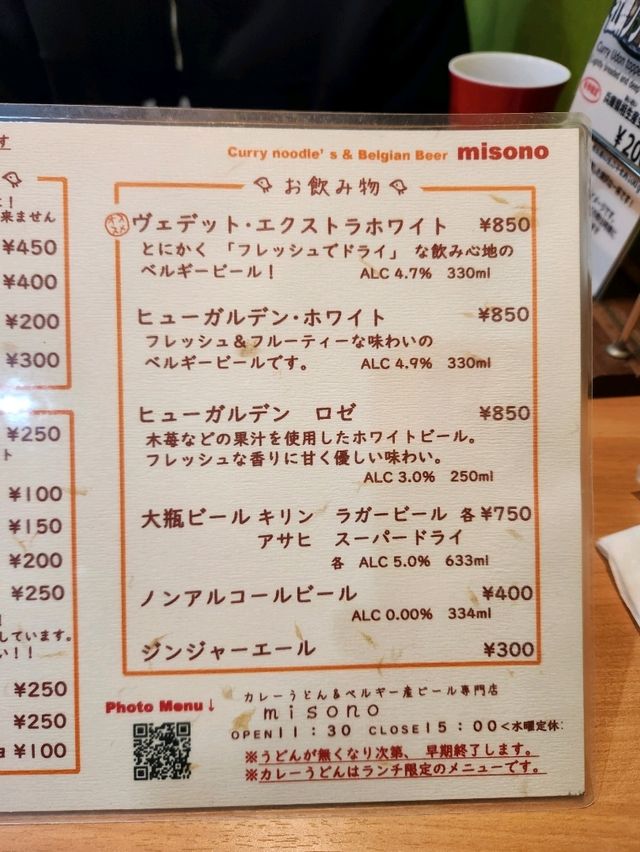 す
Curry noodle's & Belgian Beer misono
お飲み物
来ません
¥450
¥400
¥200
¥300
¥250
ト
¥100
¥150
¥200
¥250
しています。
い！！
¥250
¥250
¥100
オススメ
ヴェデット・エクストラホワイト ¥850
とにかく 「フレッシュでドライ」 な飲み心地の
ベルギービール！ ALC 4.7% 330ml
ヒューガルデン・ホワイト ¥850
フレッシュ＆フルーティーな味わいの
ベルギービールです。 ALC 4.9% 330ml
ヒューガルデン ロゼ ¥850
木苺などの果汁を使用したホワイトビール。
フレッシュな香りに甘く優しい味わい。
ALC 3.0% 250ml
大瓶ビール キリン ラガービール 各 ¥750
アサヒ スーパードライ
各 ALC 5.0% 633ml
ノンアルコールビール ¥400
ALC 0.00% 334ml
ジンジャーエール ¥300
Photo Menu↓
カレーうどん＆ベルギー産ビール専門店
misono
OPEN 11：30 CLOSE 15：00＜水曜定休
※うどんが無くなり次第、早期終了します。
※カレーうどんはランチ限定のメニューです。
Curry Udon